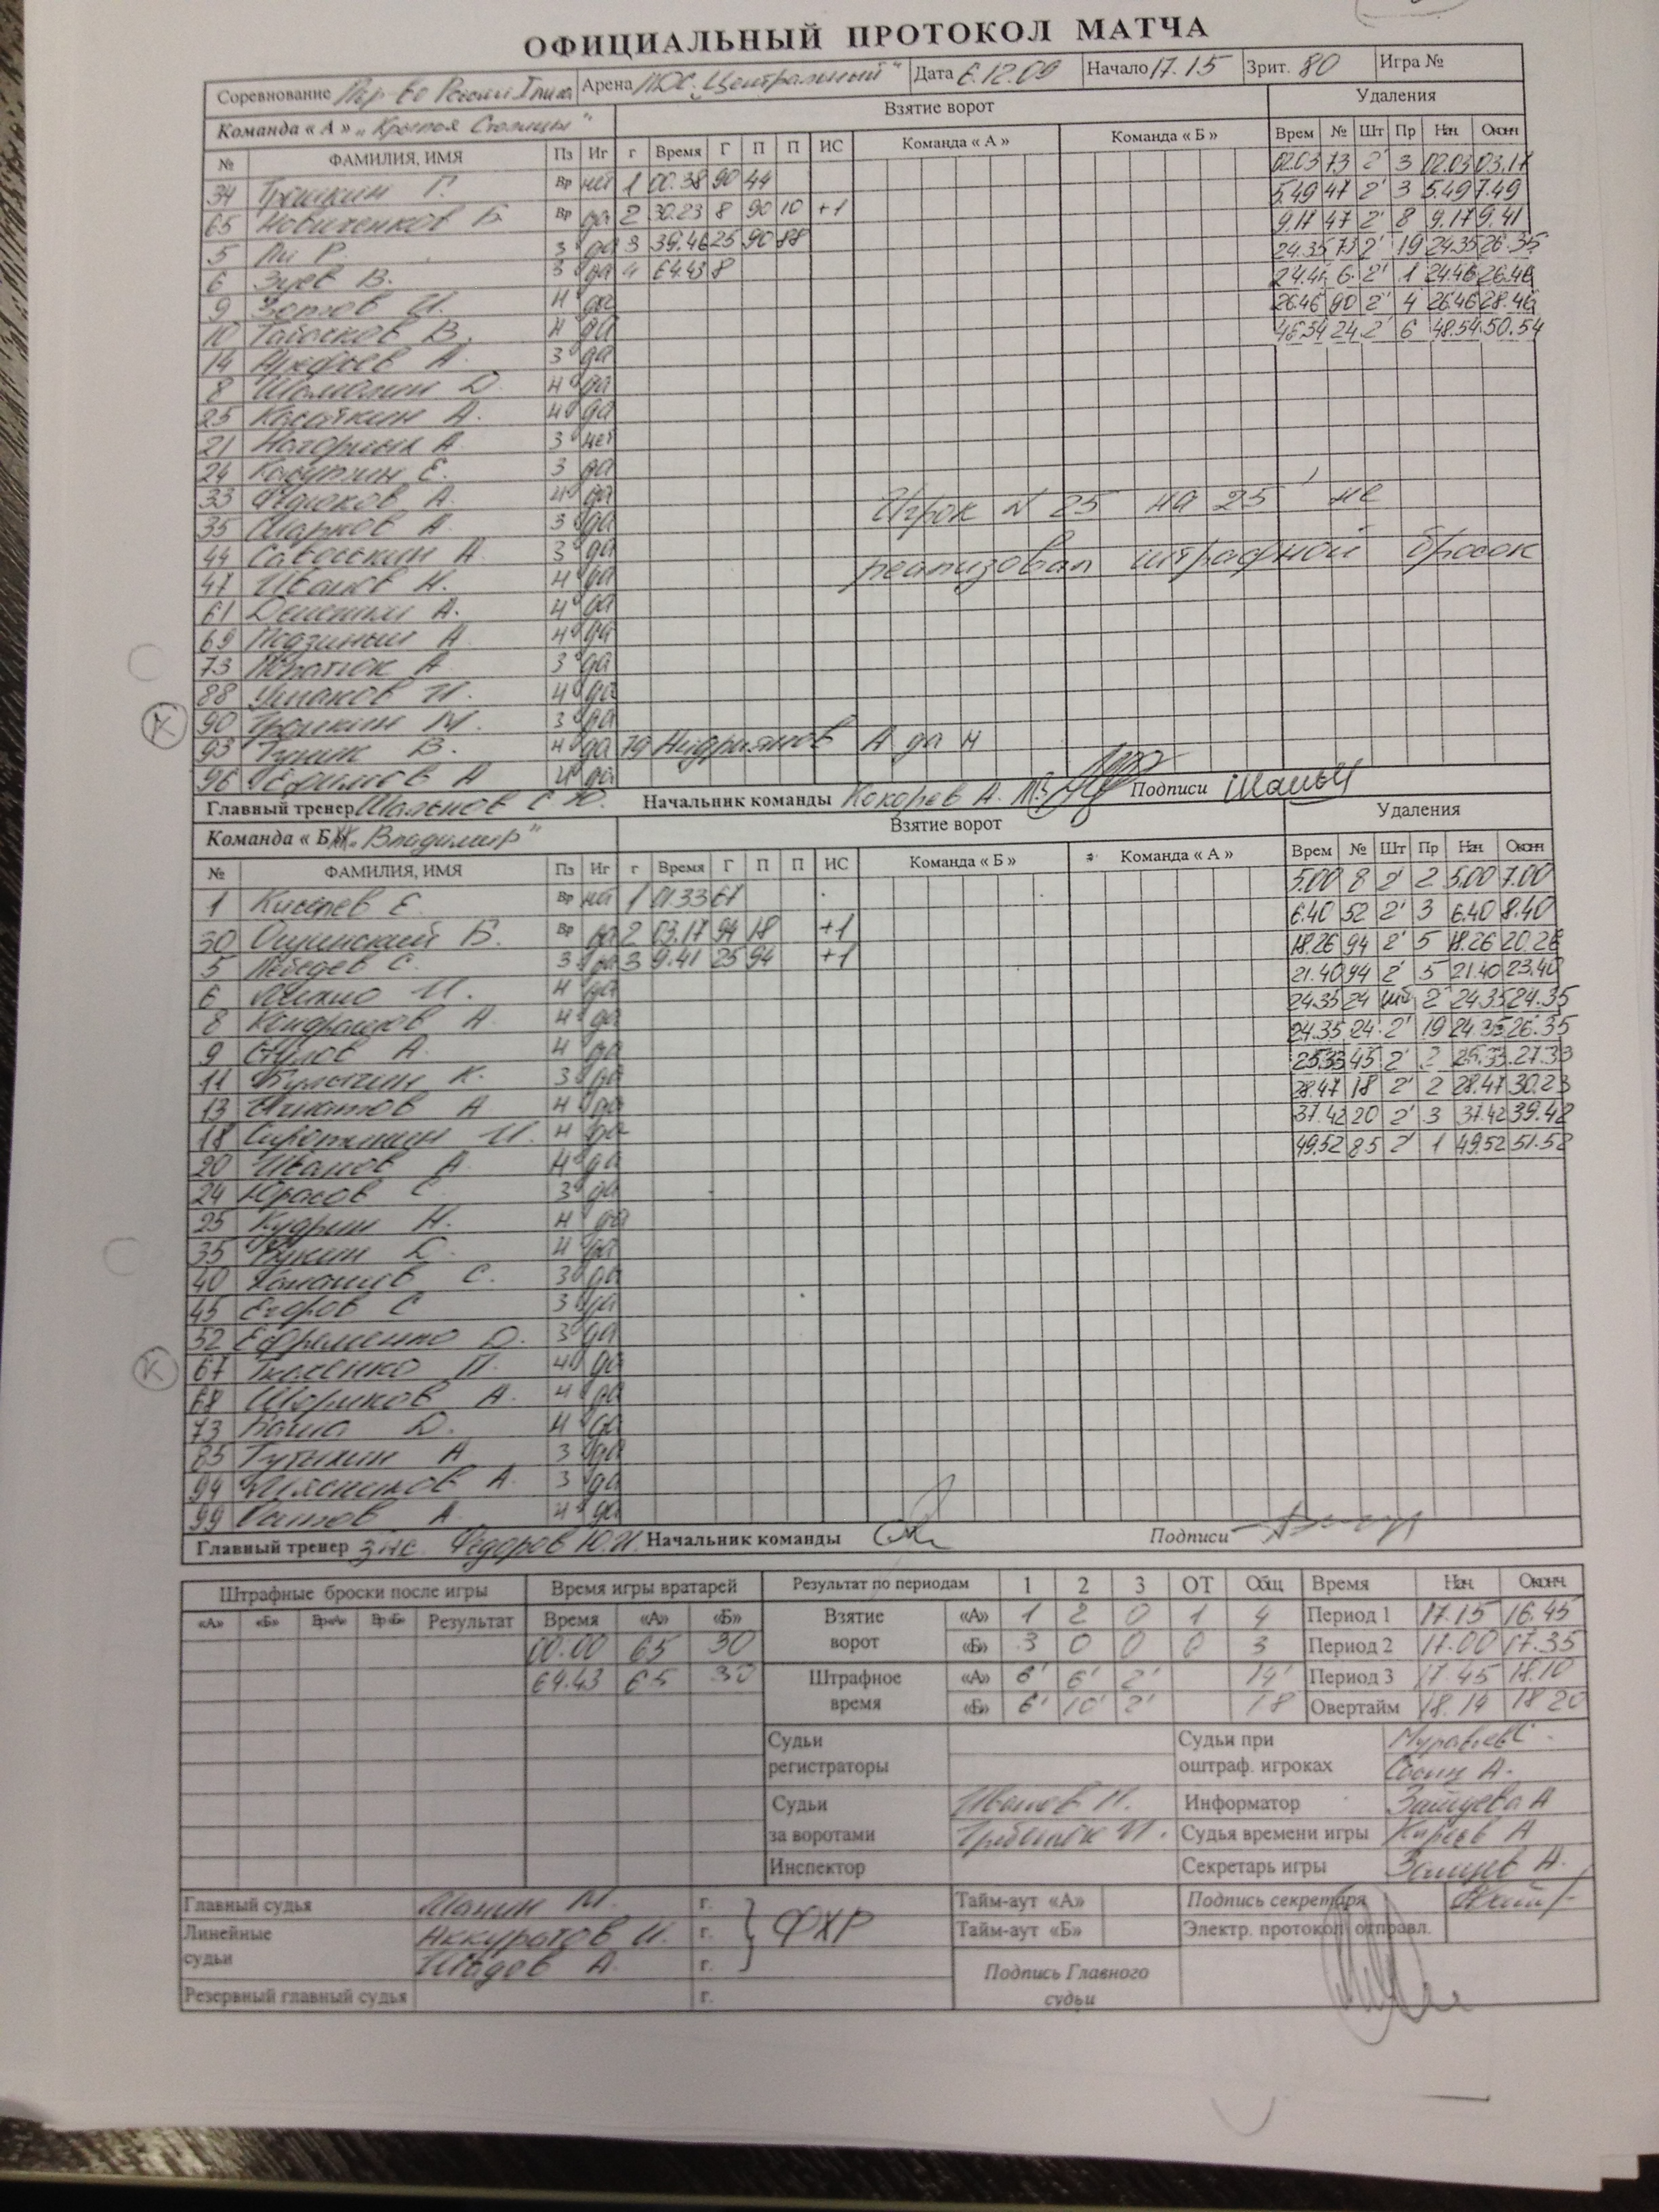 ОФИЦИАЛЬНЫЙ ПРОТОКОЛ МАТЧА
Соревнование Арена "Центральный" Дата 6.12.09 Начало 17.15 Зрит. 80 Игра №
Команда « А » Взятие ворот Удаления
№ ФАМИЛИЯ, ИМЯ Пз Иг г Время Г П П ИС Команда « А » Команда « Б » Врем № Шт Пр Нач Оконч
34 Трошкин Г. Вр нет 1 00.38 90 44 02.03 73 2' 3 02.03 03.17
65 Новиченков Б Вр да 2 30.23 8 90 10 +1 5.49 47 2' 3 5.49 7.49
5 Ли Р. З да 3 39.46 25 90 88 9.17 47 2' 8 9.17 9.41
6 Зуев В. З да 4 64.43 8 24.35 73 2' 19 24.35 26.35
9 Зотов И. Н да 24.46 6 2' 1 24.46 26.46
10 В. Н да 26.46 90 2' 4 26.46 28.46
14 А З да 48.54 24 2' 6 48.54 50.54
8 Шаманин D. Н да
25 Касаткин А. Н да
21 Нагорных А З нет
24 Е. З да
33 Федюков А Н да
35 Марков А З да
44 Савоськин А З да
47 Иванов Н. Н да
61 А. Н да
69 А Н да
73 А З да
88 Ушаков И. Н да
К 90 Трошкин М. З да
93 В. Н да 79 Андриянов А да Н
96 Ефимов А Н да
Игрок N 25 на 25' не
реализовал штрафной бросок
Главный тренер Начальник команды Кокорев А. Подписи
Команда « Б » "Владимир" Взятие ворот Удаления
№ ФАМИЛИЯ, ИМЯ Пз Иг г Время Г П П ИС Команда « Б » Команда « А » Врем № Шт Пр Нач Оконч
1 Киселев Е. Вр нет 1 01.33 67 5.00 8 2' 2 5.00 7.00
30 Ошинский Б. Вр да 2 03.17 94 18 +1 6.40 52 2' 3 6.40 8.40
5 Лебедев С. З да 3 9.41 25 94 +1 18.26 94 2' 5 18.26 20.26
6 И. Н да 21.40 94 2' 5 21.40 23.40
8 Кондрашов А Н да 24.35 24 шб 2 24.35 24.35
9 Стулов А. Н да 24.35 24 2' 19 24.35 26.35
11 Булыгин К. З да 25.33 45 2' 2 25.33 27.33
13 Игнатов А Н да 28.47 18 2' 2 28.47 30.23
18 И. Н да 37.42 20 2' 3 37.42 39.42
20 Иванов А. Н да 49.52 85 2' 1 49.52 51.52
24 Юрасов С З да
25 Кудрин Н. Н да
35 D. Н да
40 С. З да
45 Егоров С З да
52 Ефременко D. З да
К 67 Ткаченко П. Н да
68 Шориков А. Н да
73 D. Н да
85 А З да
94 Мясников А. З да
99 А. Н да
Главный тренер Федоров Ю.И. Начальник команды Подписи
Штрафные броски после игры Время игры вратарей Результат по периодам 1 2 3 ОТ Общ Время Нач. Оконч.
«А» «Б» Вр«А» Вр«Б» Результат Время «А» «Б» Взятие ворот «А» 1 2 0 1 4 Период 1 17.15 16.45
00.00 65 30 «Б» 3 0 0 0 3 Период 2 17.00 17.35
64.43 65 30 Штрафное время «А» 6' 6' 2' 14' Период 3 17.45 18.10
«Б» 6' 10' 2' 18 Овертайм 18.14 18.20
Судьи регистраторы Судьи при оштраф. игроках Муравьев С.
А.
Судьи за воротами Иванов Н. Информатор Зайцева А
И. Судья времени игры Киреев А
Инспектор Секретарь игры Зайцев А.
Главный судья М. г. Тайм-аут «А» Подпись секретаря
Линейные судьи Аккуратов И. г. ФХР Тайм-аут «Б» Электр. протокол отправл.
А. г. Подпись Главного судьи
Резервный главный судья г.